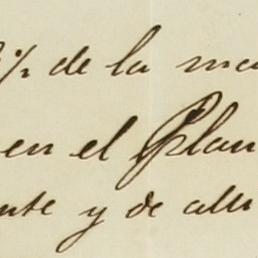 % de la ma
en el Plan
nte y de alli